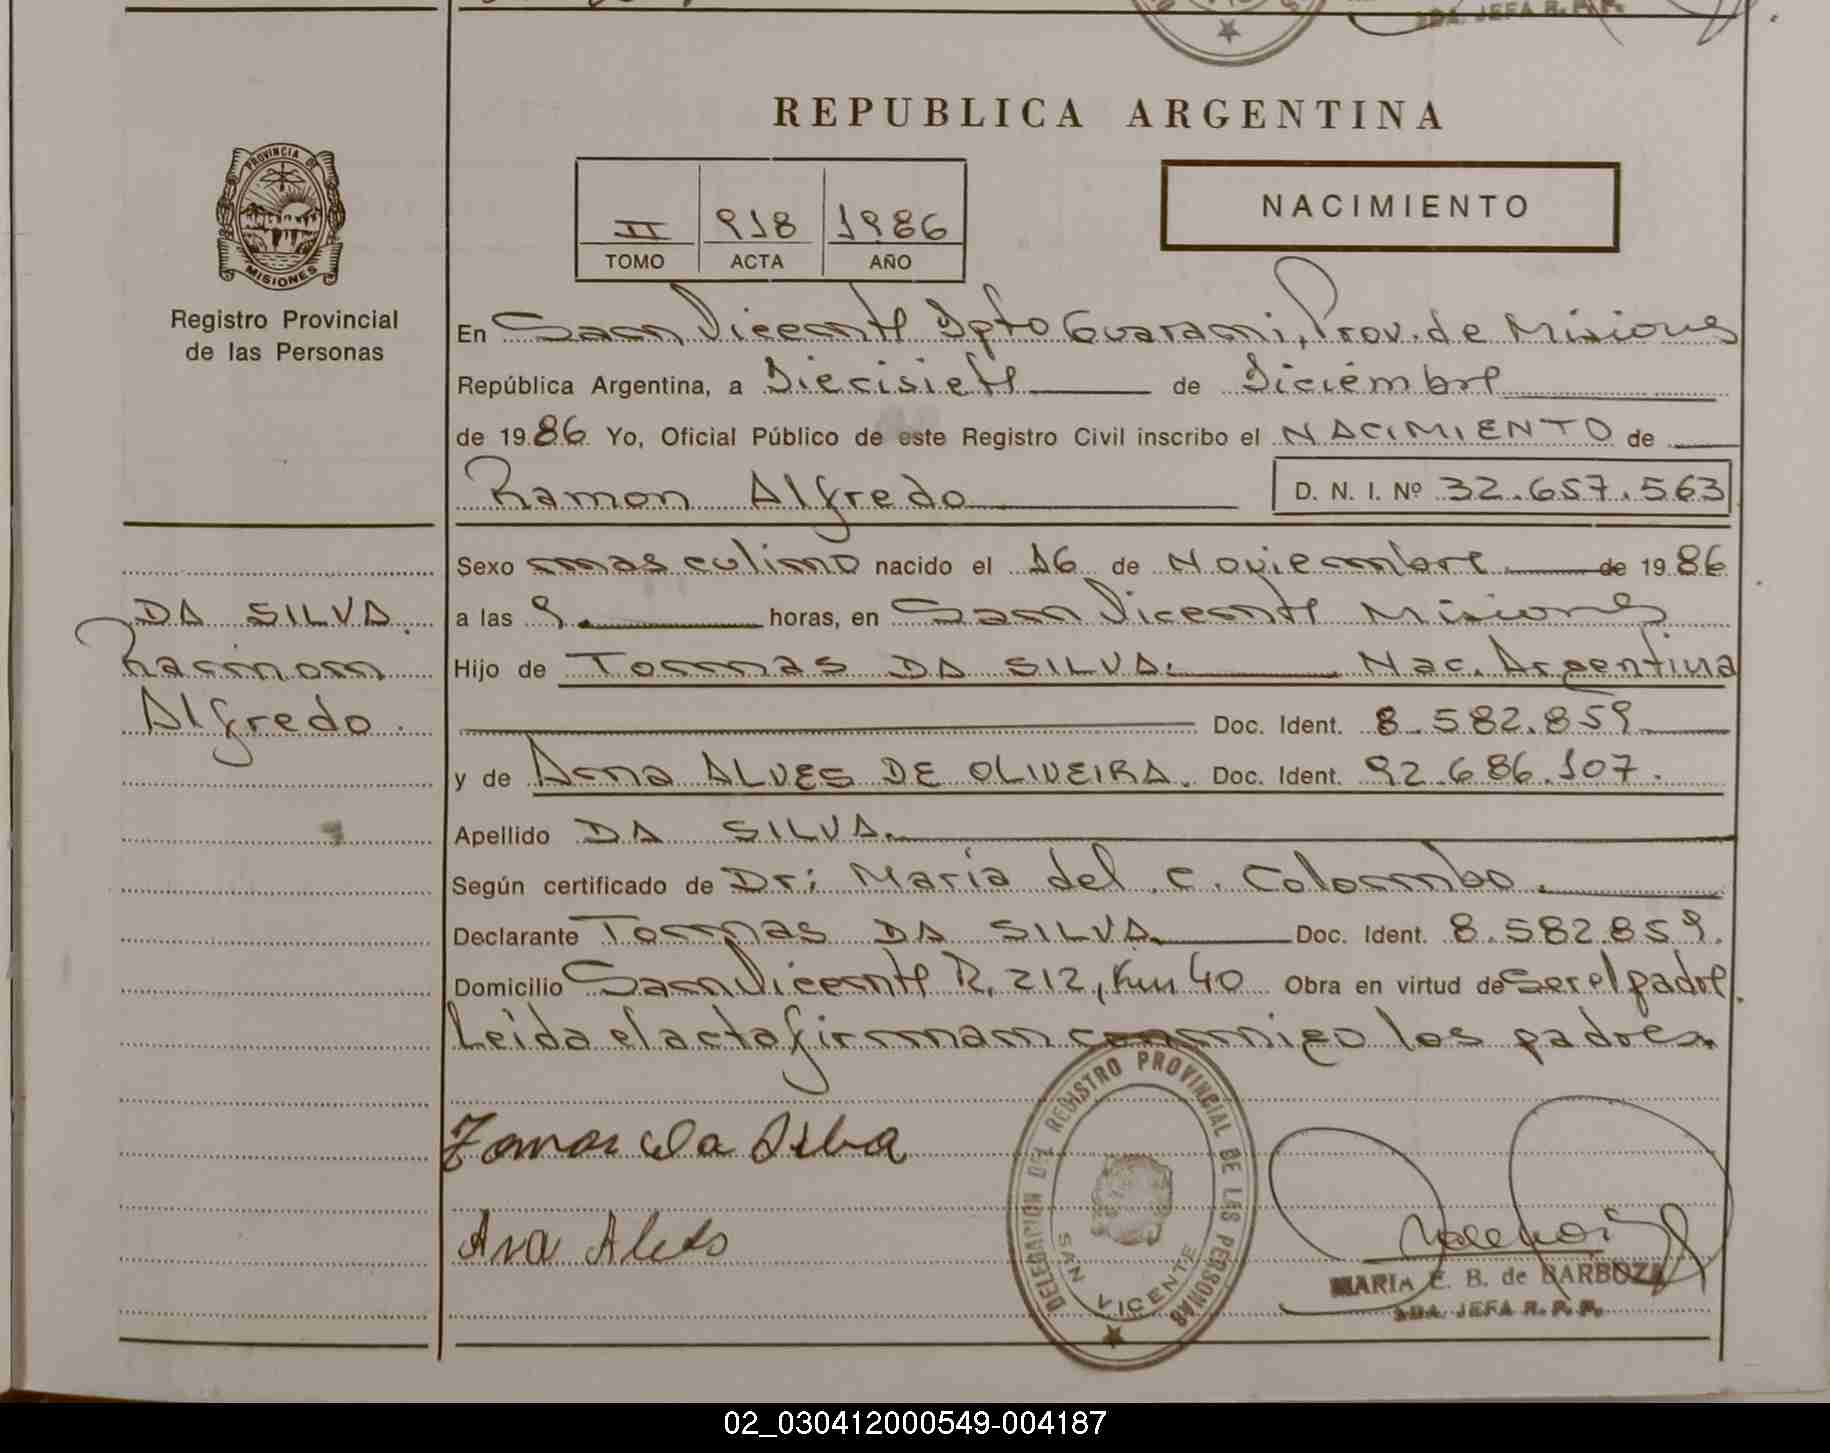 SDA. JEFA R. P. P.
REPUBLICA ARGENTINA
PROVINCIA DE
MISIONES
Registro Provincial
de las Personas
II 918 1986
TOMO ACTA AÑO
NACIMIENTO
En San Vicente Dpto Guarani, Prov. de Misiones
República Argentina, a Diecisiete de Diciembre
de 1986 Yo, Oficial Público de este Registro Civil inscribo el NACIMIENTO de
Ramon Alfredo D. N. I. Nº 32.657.563
Sexo masculino nacido el 16 de Noviembre de 1986
a las 9. horas, en San Vicente Misiones
Hijo de Tomas DA SILVA. Nac. Argentina
Doc. Ident. 8.582.859
y de Ana ALVES DE OLIVEIRA. Doc. Ident. 92.686.107.
Apellido DA SILVA.
Según certificado de Dr: María del C. Colombo.
Declarante Tomas DA SILVA. Doc. Ident. 8.582.859.
Domicilio San Vicente R. 212, Km 40 Obra en virtud de ser el padre.
Leída el acta firman conmigo los padres.
DA SILVA.
Ramon
Alfredo.
Tomas da Silva
Ana Alves
DELEGACION DEL REGISTRO PROVINCIAL DE LAS PERSONAS
SAN VICENTE
MARIA E. B. de BARBOZA
SDA. JEFA R. P. P.
02_030412000549-004187